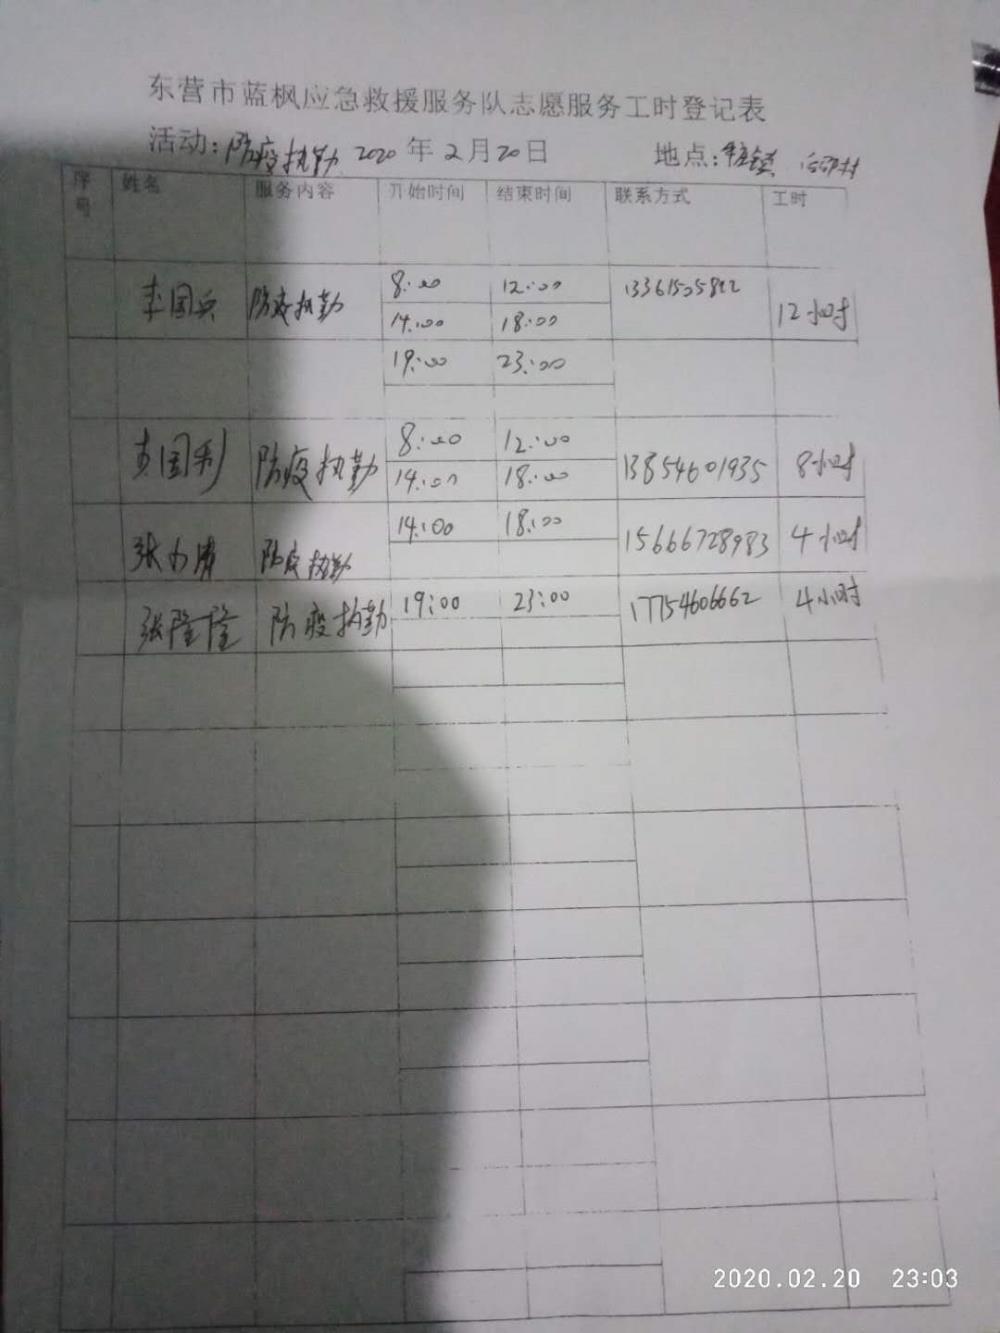 东营市蓝枫应急救援服务队志愿服务工时登记表
活动:防疫执勤 2020年2月20日 地点:
序号 姓名 服务内容 开始时间 结束时间 联系方式 工时
李国兵 防疫执勤 8:00 12:00 12小时
14:00 18:00
19:00 23:00
李国利 防疫执勤 8:00 12:00 13854601935 8小时
14:00 18:00
防疫执勤 14:00 18:00 15666728983 4小时
张隆隆 防疫执勤 19:00 23:00 17754606662 4小时
2020.02.20 23:03